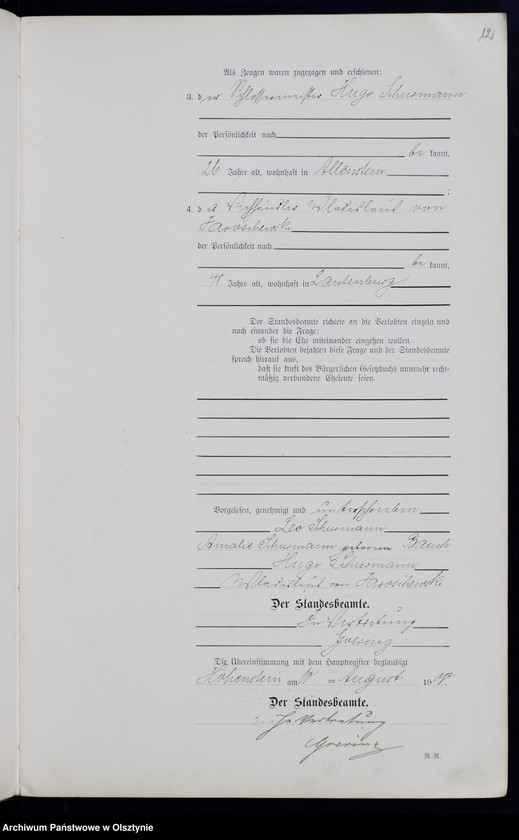 12
Als Zeugen waren zugezogen und erschienen:
3. der Schlossermeister Hugo Schusmann
der Persönlichkeit nach
bekannt,
26 Jahre alt, wohnhaft in Allenstein
;
4. der Viehhändler Wladislaus von
Jaroschewski
der Persönlichkeit nach
bekannt,
Jahre alt, wohnhaft in Lautenburg
Der Standesbeamte richtete an die Verlobten einzeln und
nach einander die Frage:
ob sie die Ehe miteinander eingehen wollen.
Die Verlobten bejahten diese Frage und der Standesbeamte
sprach hierauf aus,
daß sie kraft des Bürgerlichen Gesetzbuchs nunmehr recht-
mäßig verbundene Eheleute seien.
Vorgelesen, genehmigt und unterschrieben
Leo Schusmann
Amalie Schusmann geborene
Hugo Schusmann
Wladislaus von Jaroschewski
Der Standesbeamte.
In Vertretung
Die Übereinstimmung mit dem Hauptregister beglaubigt
Hohenstein am 10 ten August 19
Der Standesbeamte.
In Vertretung
R.-R.
Archiwum Państwowe w Olsztynie